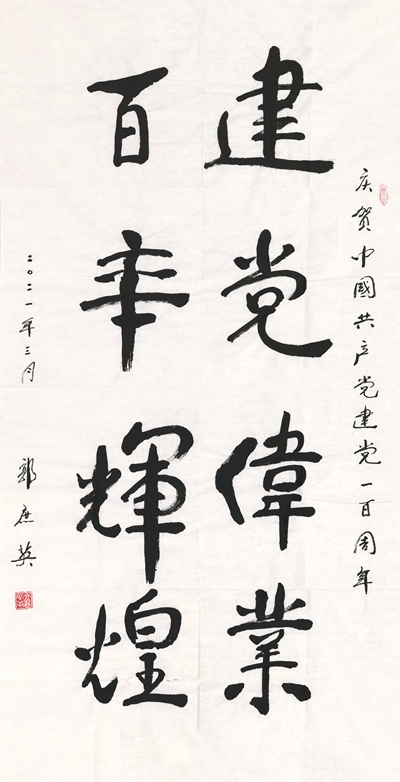 庆贺中國共产党建党一百周年
建党偉業
百年輝煌
二〇二一年三月
郭庶英